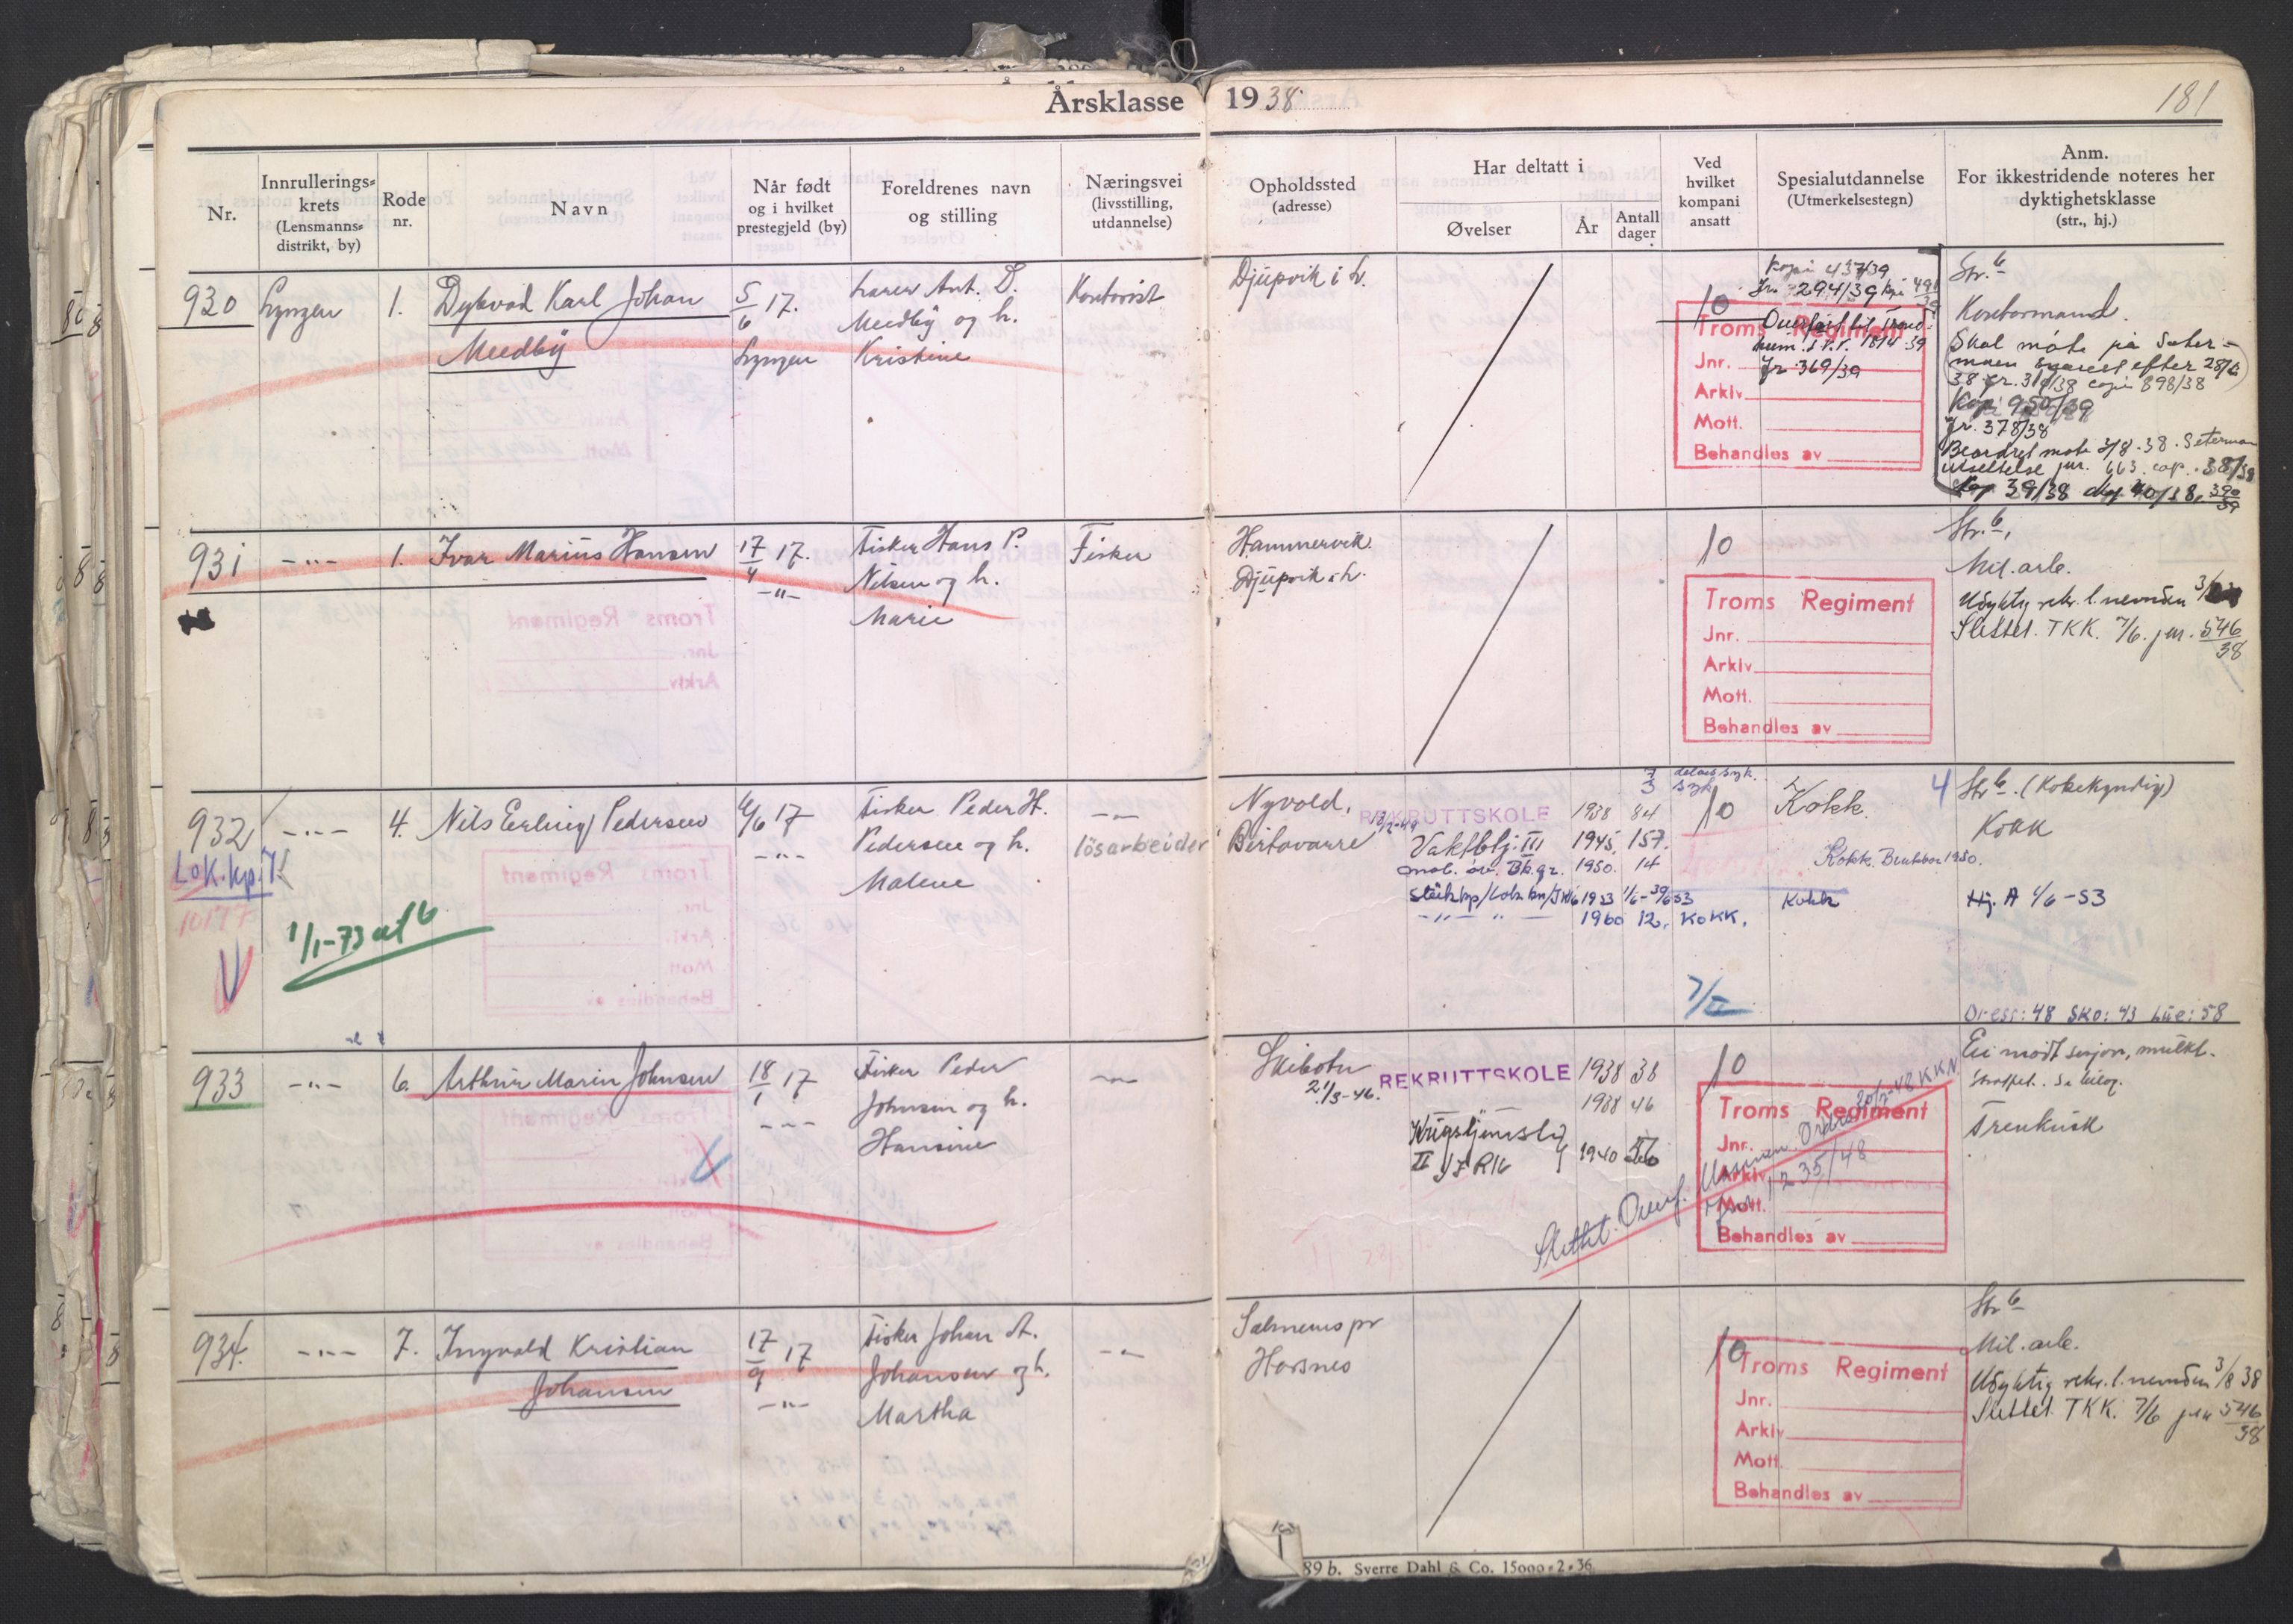 Årsklasse 1938.
181
Nr.
Innrullerings-
krets
(Lensmanns-
distrikt, by)
Rode
nr.
Navn
Når født
og i hvilket
prestegjeld (by)
Foreldrenes navn
og stilling
Næringsvei
(livsstilling,
utdannelse)
Opholdssted
(adresse)
Har deltatt i
Øvelser
År
Antall
dager
Ved
hvilket
kompani
ansatt
Spesialutdannelse
(Utmerkelsestegn)
Anm.
For ikkestridende noteres her
dyktighetsklasse
(str., hj.)
930 Lyngen 1. Dykvad Karl Johan
Meedby
5/6 17.
Lyngen
Lærer Ant. D.
Meedby og h.
Kristine
Kontorist
Djupvik i L.
10
Kopi 437/39
Jr. 294/39 kopi 491/39
Overført til Trond-
Jr 369/39
Troms Regiment
Jnr.
Arkiv
Mott.
Behandles av
Str. 6
Kontormand.
Skal møte på Seter-
moen snarest efter 28/6
38 jr. 319/38 copi 898/38
Kopi 950/39
Jr. 378/38
Beordret møte 3/8.38. Setermoen
utsettelse jnr. 663. cop. 38/38
Kop 39/38 40/38, 390/39
931 -"- 1. Ivar Marius Hansen
17/4 17.
-"-
Fisker Hans P.
Nilsen og h.
Marie
Fisker
Hammervik.
Djupvik i L.
10
Troms Regiment
Jnr.
Arkiv
Mott.
Behandles av
Str. 6,
Mil. arb.
Udyktig rekr. l. nemnden
Slettet. TKK. 7/6. jnr. 546/38
932 -"- 4. Nils Erling Pedersen
L.O.K.kp. 7
10177
1/1-73 alf 6
4/6 17
-"-
Fisker Peder H.
Pedersen og h.
Malene
-"-
løsarbeider
Nyvold,
Birtavarre
REKRUTTSKOLE 1938 84
Vaktbtj. III 1945. 157.
mob. øv. Bk.gr. 1950. 14
1953 1/6-30/6 53
-"- " - 1960 12. KOKK.
10
Kokk.
Kokk. 1950.
Kokk
7/II
4
Str. 6. (Kokekyndig)
Kokk
Hj. A 1/6-53
Dress: 48 SKO: 43 Lue: 58
933 -"- 6. Arthur Marin Johnsen
18/1 17
-"-
Fisker Peder
Johnsen og h.
Hansine
-"-
Skibotn
21/3-46.
REKRUTTSKOLE 1938 38
1938 46
Krigstjeneste
II/I R 16 1940 56
10
Slettet. Overf. Ordre 20/2-48 KKN
1235/48
Troms Regiment
Jnr.
Arkiv
Mott.
Behandles av
Ei møtt sesjon, mulkt.
Trenkusk
934. -"- 7. Ingvald Kristian
Johansen
17/9 17
-"-
Fisker Johan A.
Johansen og h.
Martha
-"-
Salmenes pr
Horsnes
10
Troms Regiment
Jnr.
Arkiv
Mott.
Behandles av
Str 6
Mil. arb.
Udyktig rekr. l. nemnden 3/8 38
Slettet. TKK. 7/6 jnr 546/38
89 b. Sverre Dahl & Co. 15000-2-36.